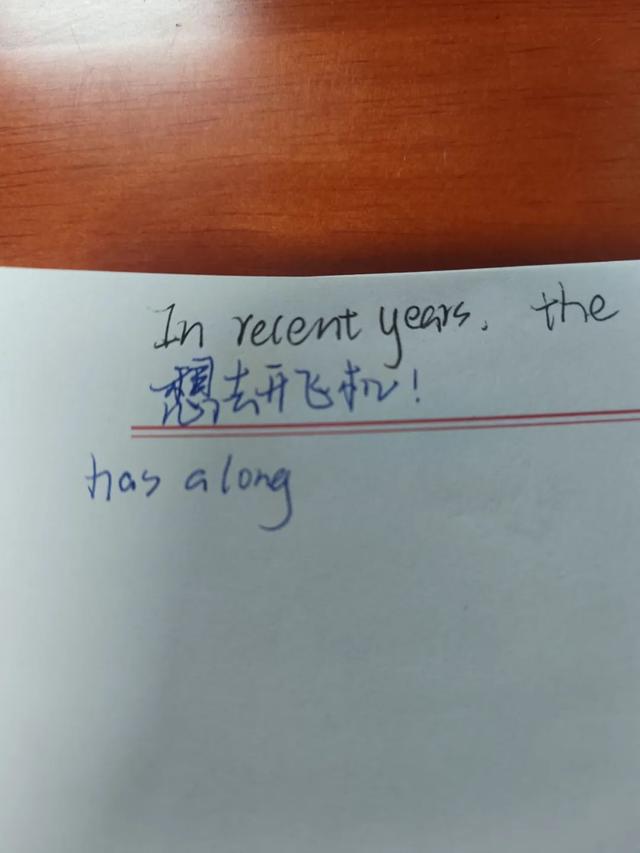 In recent years, the
想去开飞机!
has a long